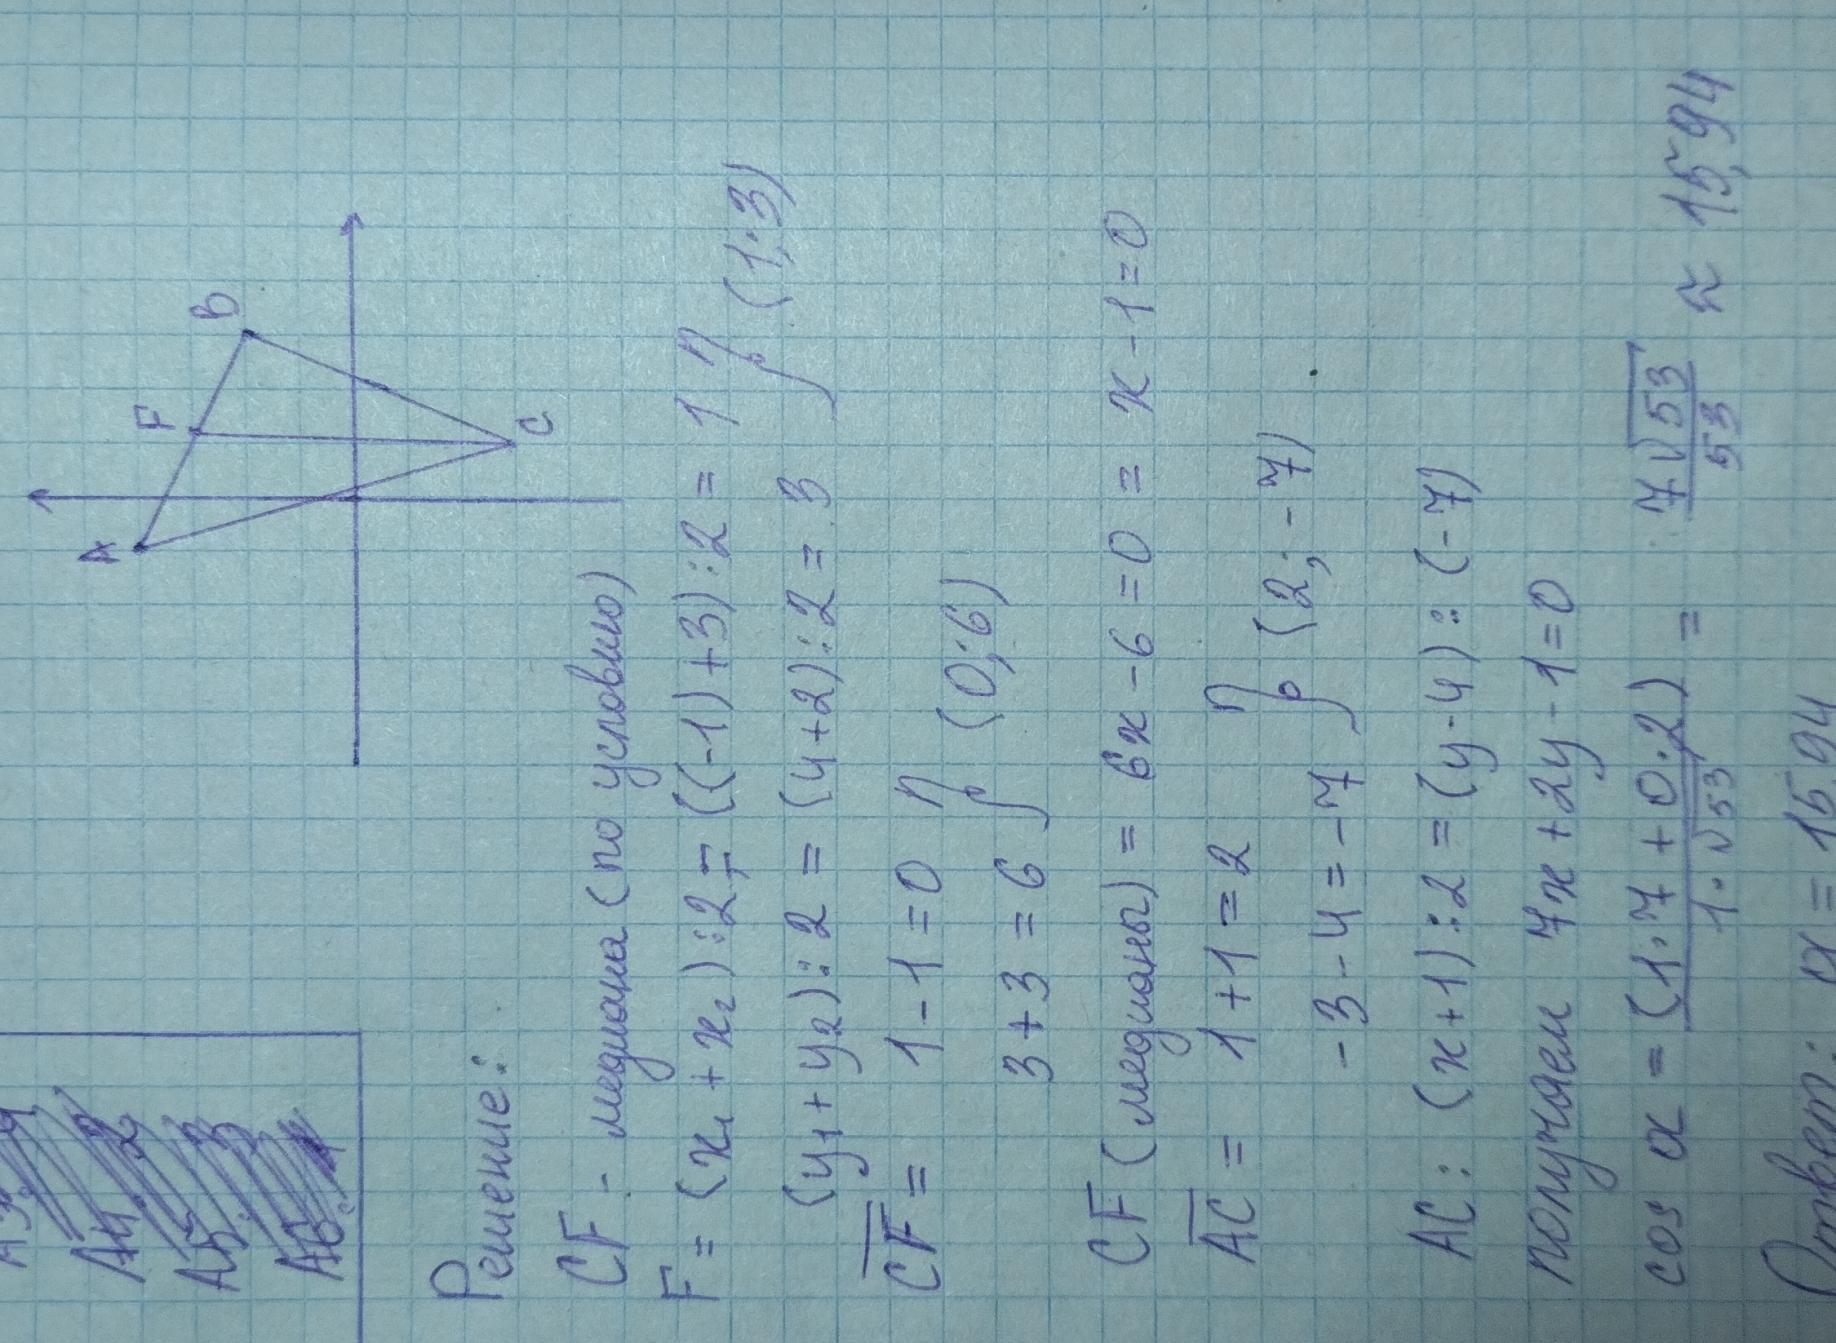 A
F
B
C
Решение:
CF - медиана (по условию)
F = (x₁ + x₂) : 2 = ((-1) + 3) : 2 = 1
(y₁ + y₂) : 2 = (4+2) : 2 = 3 } (1; 3)
CF = 1 - 1 = 0
3 + 3 = 6 } (0; 6)
CF (медианы) = 6x - 6 = 0 = x - 1 = 0
AC = 1 + 1 = 2
- 3 - 4 = - 7 } (2; - 7)
AC: (x + 1) : 2 = (y - 4) : (- 7)
получаем 7x + 2y - 1 = 0
cos α = (1·7 + 0·2) / 1·√53 = 7√53 / 53 ≈ 15,94
Ответ: α = 15,94